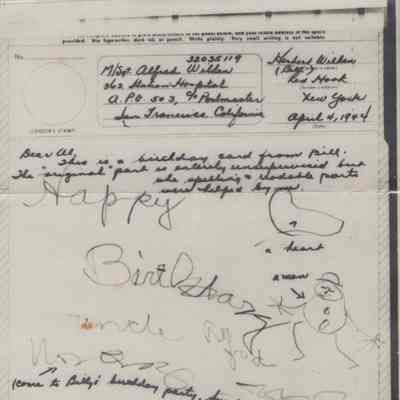 provided. Use typewriter, dark ink, or pencil. Write plainly. Very small writing is not suitable.
No.
32035119
M/Sgt. Alfred
362 Station Hospital
A.P.O. 503, c/o Postmaster
San Francisco, California
Herbert
(Bill)
Red Hook
New York
April 4, 1944
(CENSOR'S STAMP)
Dear Al,
This is a birthday card from Bill.
The "original" part is entirely unsupervised but
the spelling & readable parts
were helped by me.
Happy
a heart
Birthday
a man
Uncle
(come to Billy's birthday party,